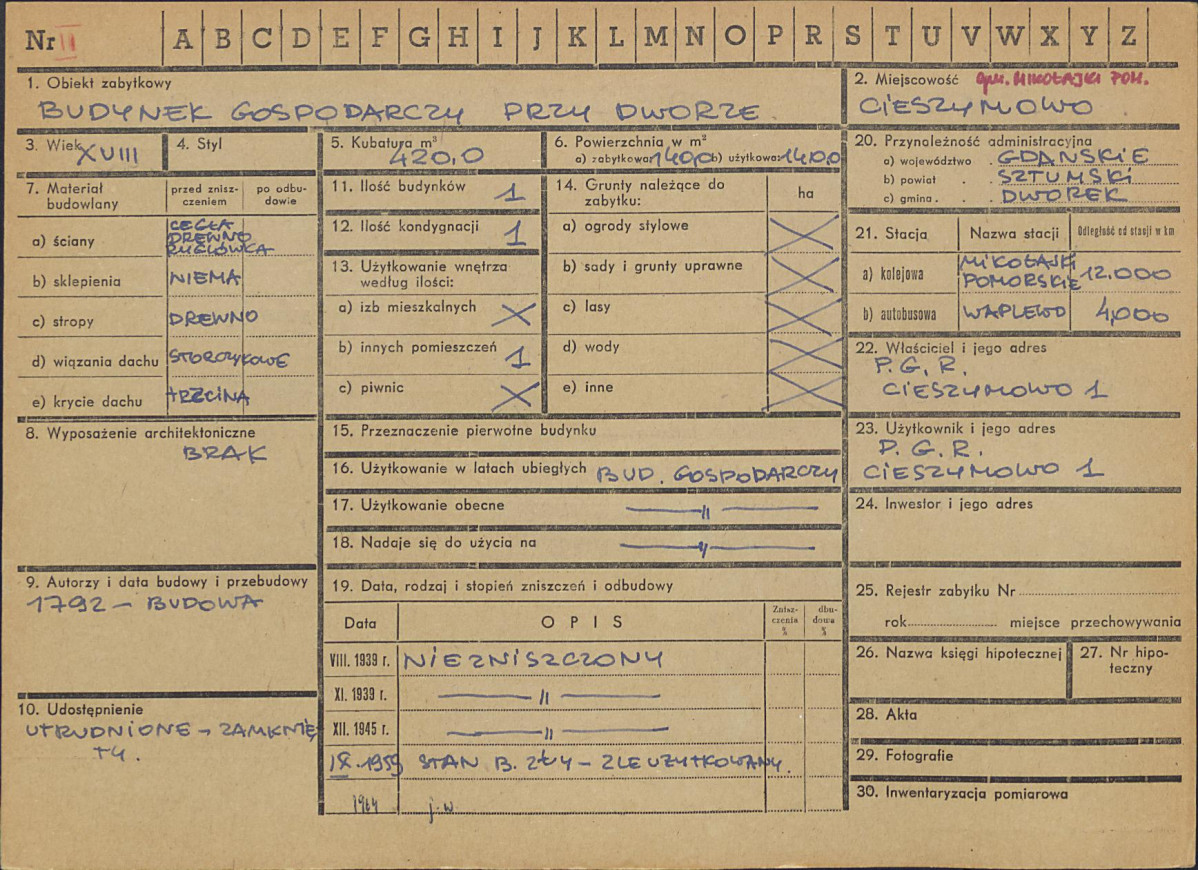 Nr II A B C D E F G H I J K L M N O P R S T U V W X Y Z
1. Obiekt zabytkowy
BUDYNEK GOSPODARCZY PRZY DWORZE
2. Miejscowość gm. MIKOŁAJKI POM.
CIESZYMOWO
3. Wiek XVIII
4. Styl
5. Kubatura m³
420,0
6. Powierzchnia w m²
a) zabytkowa 140,0 b) użytkowa 140,0
7. Materiał budowlany
przed zniszczeniem
po odbudowie
a) ściany
CEGŁA
DREWNO
b) sklepienia NIEMA
c) stropy DREWNO
d) wiązania dachu STORCZYKOWE
e) krycie dachu TRZCINA
8. Wyposażenie architektoniczne
BRAK
9. Autorzy i data budowy i przebudowy
1792 – BUDOWA
10. Udostępnienie
UTRUDNIONE – ZAMKNIĘ
TY.
11. Ilość budynków 1
12. Ilość kondygnacji 1
13. Użytkowanie wnętrza
według ilości:
a) izb mieszkalnych
b) innych pomieszczeń 1
c) piwnic
14. Grunty należące do
zabytku:
ha
a) ogrody stylowe
b) sady i grunty uprawne
c) lasy
d) wody
e) inne
15. Przeznaczenie pierwotne budynku
16. Użytkowanie w latach ubiegłych BUD. GOSPODARCZY
17. Użytkowanie obecne — " —
18. Nadaje się do użycia na — " —
19. Data, rodzaj i stopień zniszczeń i odbudowy
Data OPIS Zniszczenia % dbudowa %
VIII. 1939 r. NIEZNISZCZONY
XI. 1939 r. — " —
XII. 1945 r. — " —
IX. 1959 STAN B. ZŁY – ZLE UZYTKOWANY.
1964 j.w.
20. Przynoleżność administracyjna
a) województwo GDAŃSKIE
b) powiat SZTUMSKI
c) gmina DWOREK
21. Stacja Nazwa stacji Odległość od stacji w km
a) kolejowa MIKOŁAJKI
POMORSKIE 12.000
b) autobusowa WAPLEWO 4,000
22. Właściciel i jego adres
P.G.R.
CIESZYMOWO 1
23. Użytkownik i jego adres
P.G.R.
CIESZYMOWO 1
24. Inwestor i jego adres
25. Rejestr zabytku Nr
rok miejsce przechowywania
26. Nazwa księgi hipotecznej
27. Nr hipoteczny
28. Akta
29. Fotografie
30. Inwentaryzacja pomiarowa